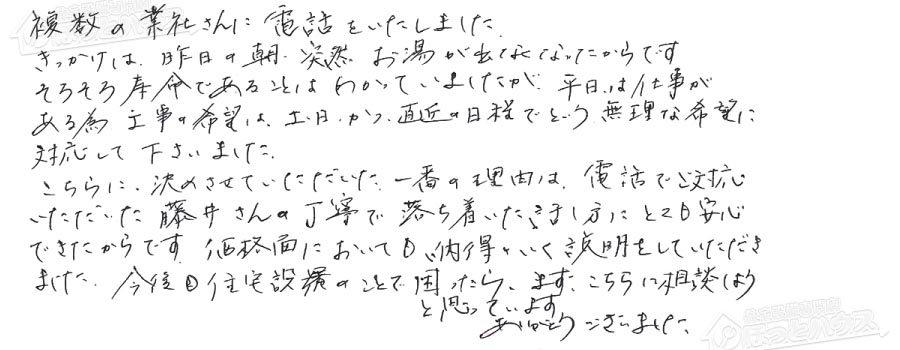 複数の業社さんに電話をいたしました.
きっかけは、昨日の朝、突然 お湯が出なくなったからです
そろそろ寿命であることはわかっていましたが、平日は仕事が
ある為 工事の希望は、土日、かつ、直近の日程でという無理な希望に
対応して下さいました.
こちらに、決めさせていただいた一番の理由は、電話でご対応
いただいた藤井さんの丁寧で落ち着いた話し方にとても安心
できたからです 価格面においても、納得いく説明をしていただき
ました. 今後も住宅設備のことで困ったら、まず、こちらに相談しよう
と思っています
ありがとうございました.
ほっとハウス